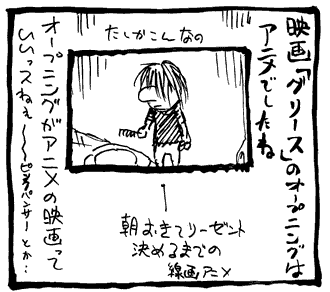 映画「グリース」のオープニングは
アニメでしたね
たしかこんなの
朝おきてリーゼント
決めるまでの
線画アニメ
オープニングがアニメの映画って
いいっスねぇ〜〜ピンクパンサーとか…